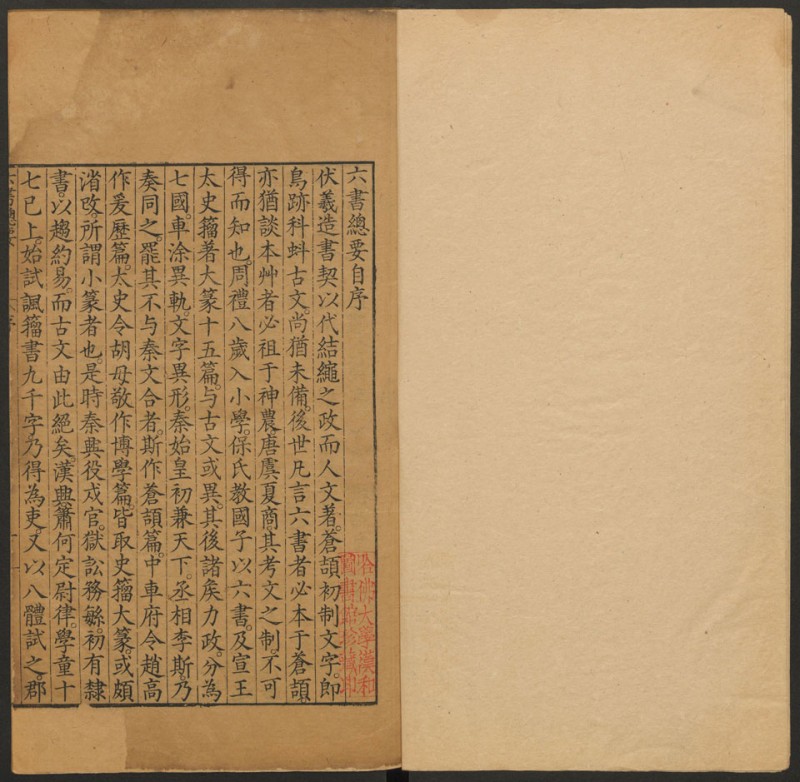 六書總要自序
伏羲造書契以代結繩之政而人文著。蒼頡初制文字。即
鳥跡科蚪古文。尚猶未備。後世凡言六書者必本于蒼頡
亦猶談本艸者必祖于神農唐虞夏商。其考文之制。不可
得而知也。周禮八歲入小學。保氏教國子以六書。及宣王
太史籀著大篆十五篇。与古文或異。其後諸矦力政。分為
七國。車涂異軌。文字異形。秦始皇初兼天下。丞相李斯。乃
奏同之。罷其不与秦文合者。斯作蒼頡篇。中車府令趙高
作爰歷篇。太史令胡母敬作博學篇。皆取史籀大篆。或頗
渻攺。所謂小篆者也。是時秦興役戍官。獄訟務緐。初有隸
書。以趨約易。而古文由此絕矣。漢興蕭何定尉律。學童十
七已上。始試諷籀書九千字。乃得為吏。又以八體試之。郡
六書總要
哈佛大學漢和
圖書館珍藏印